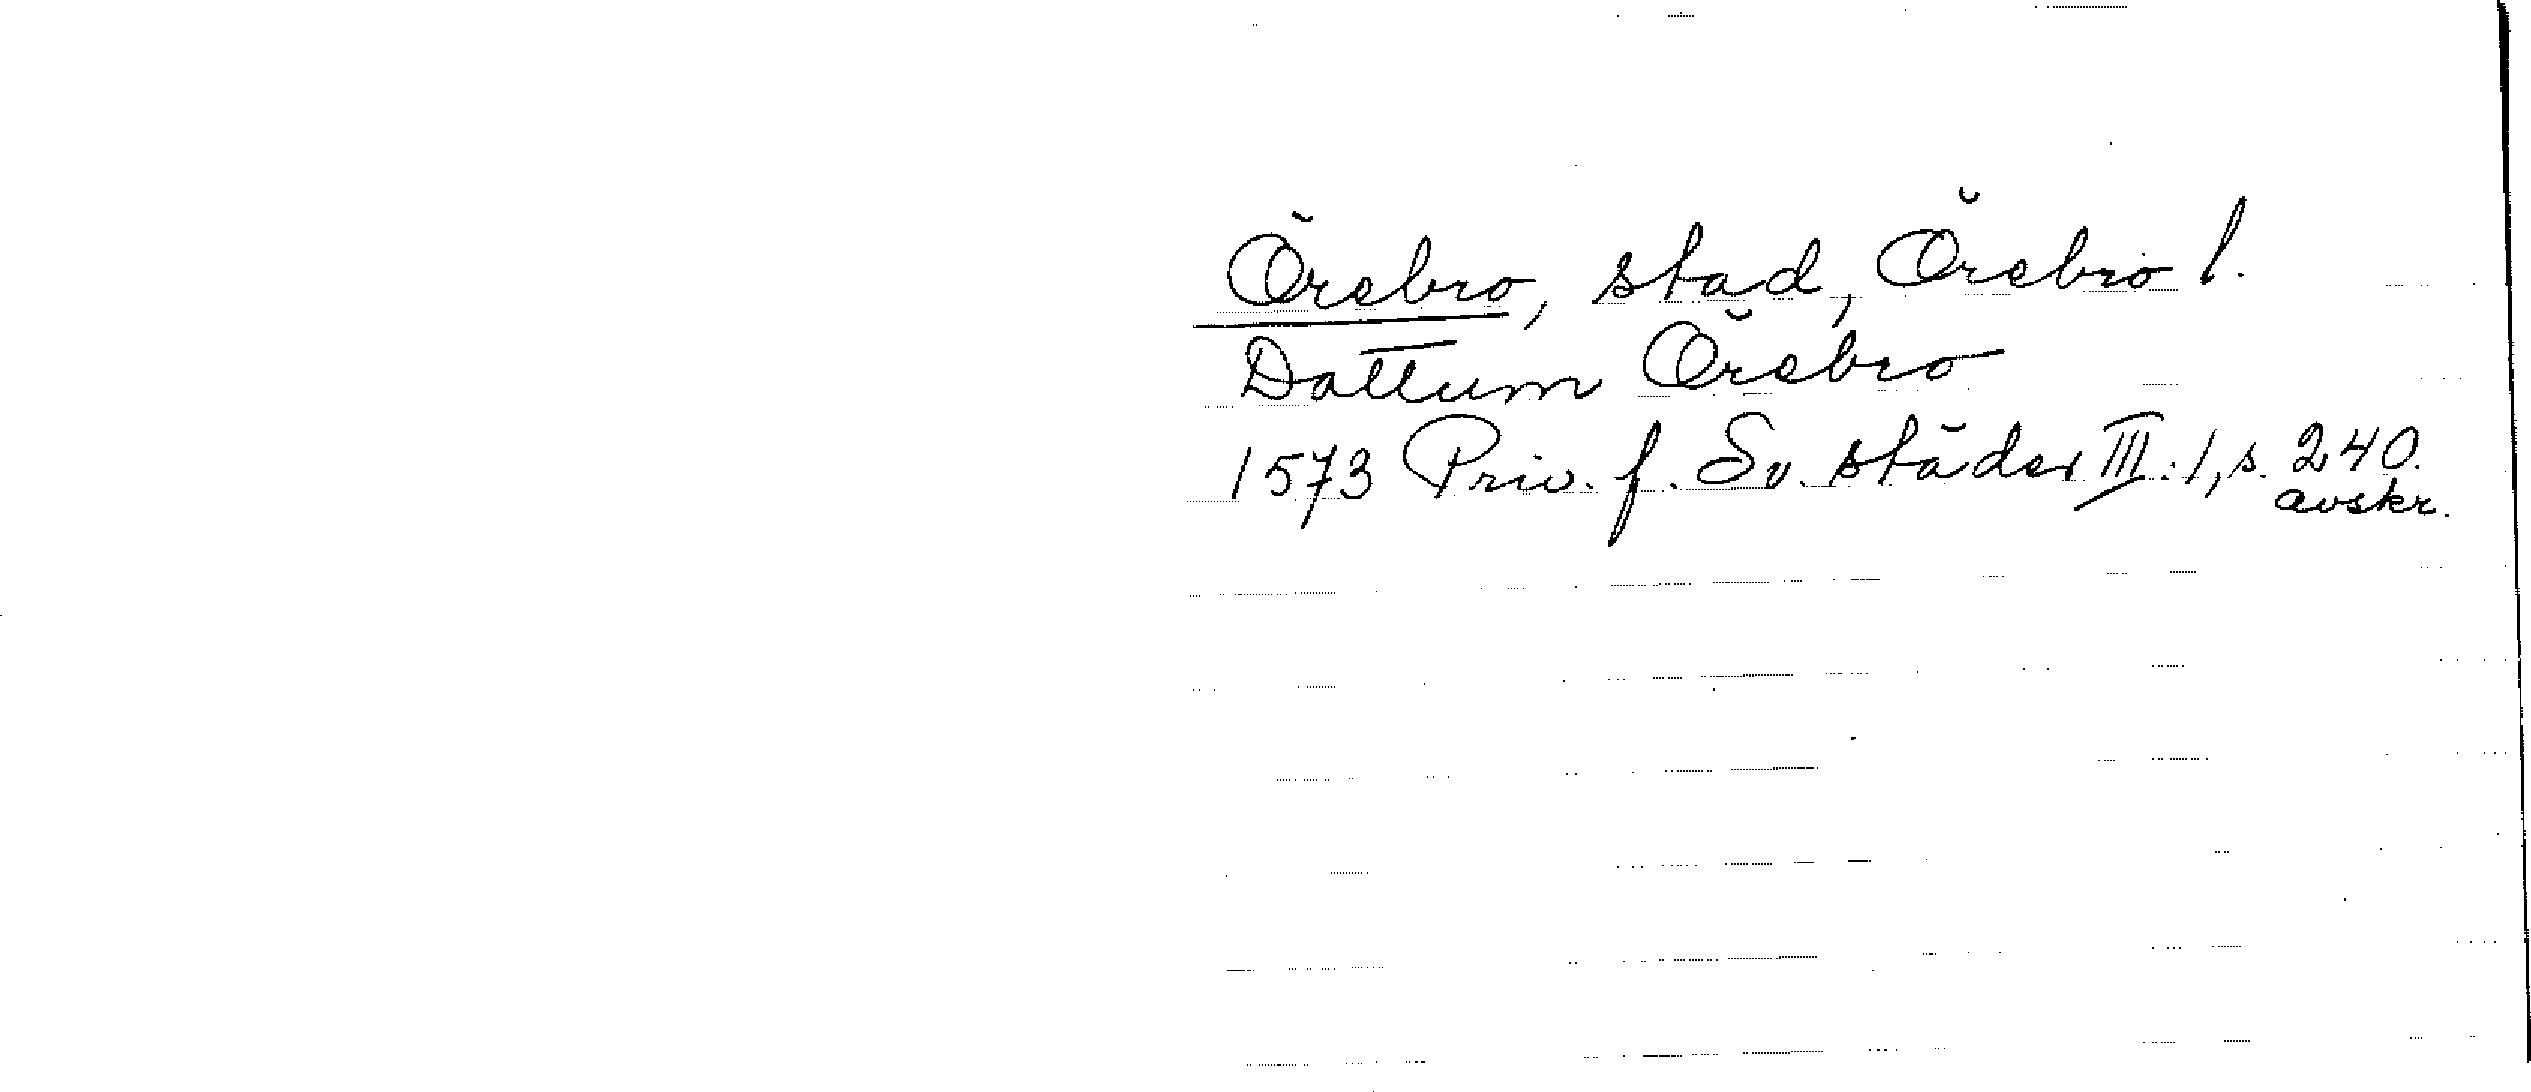 Örebro, stad, Örebro l.
Dattum Örebro
1573 Priv. f. Sv. städer III:1, s. 240.
avskr.